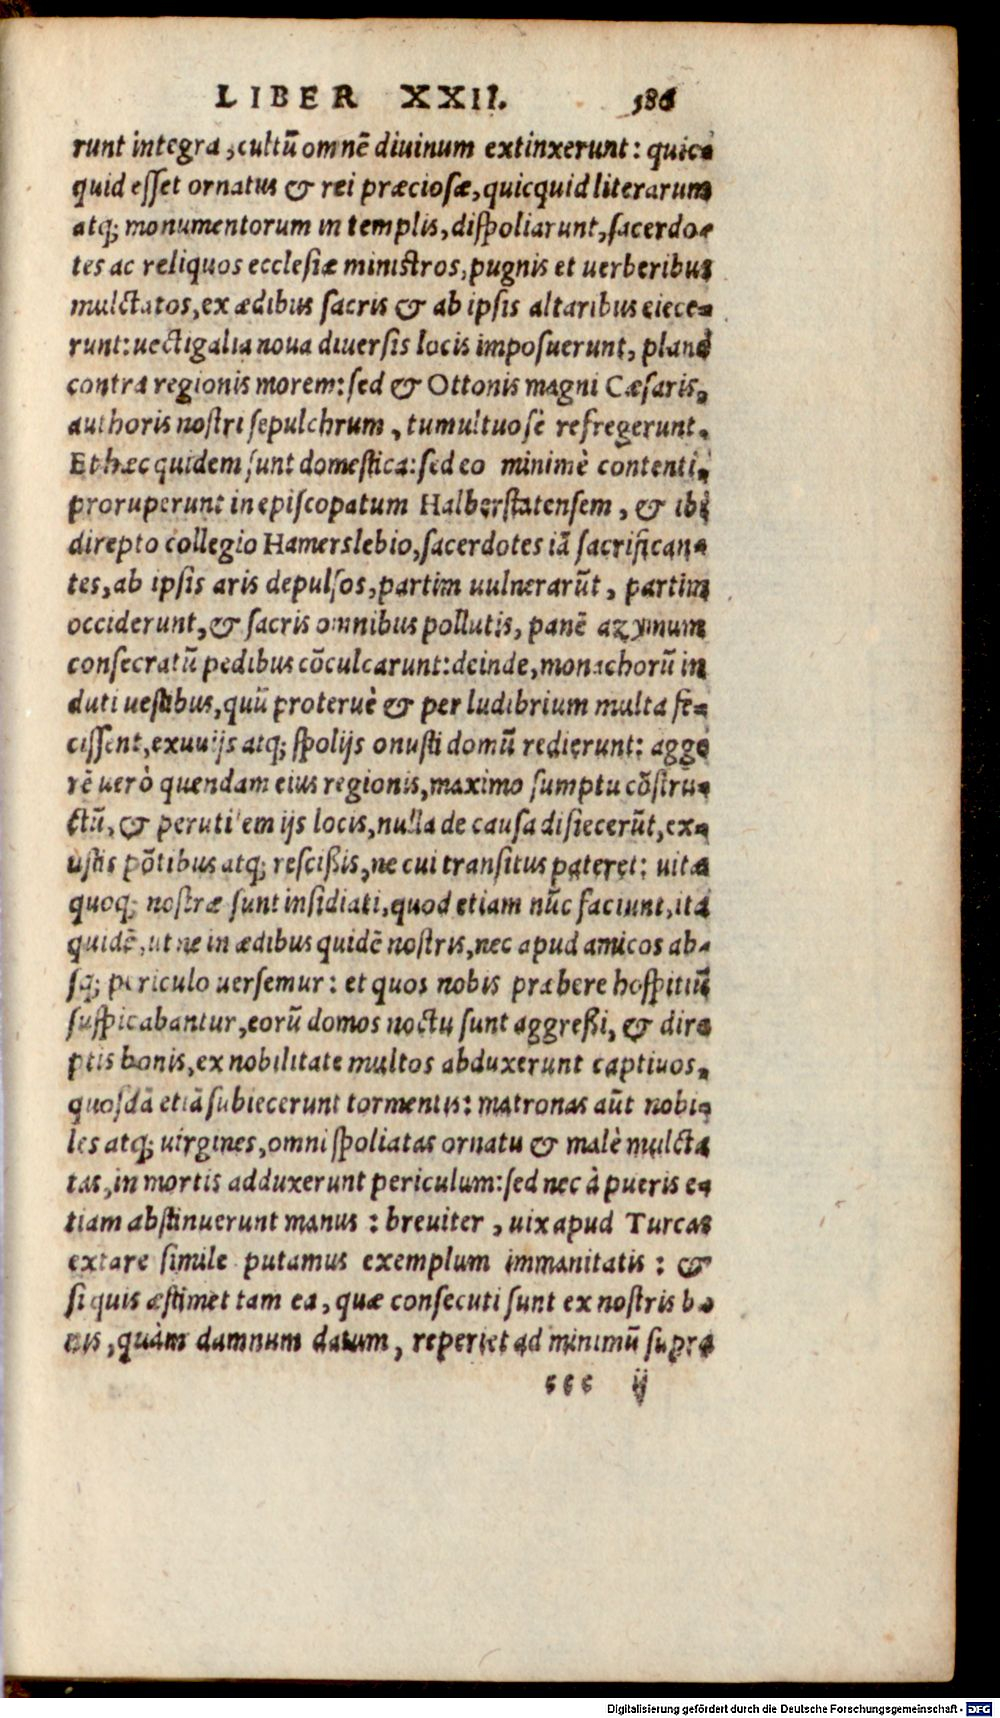 LIBER XXII. 386
runt integra, cultū omnē diuinum extinxerunt: quic=
quid esset ornatus & rei præciosæ, quicquid literarum
atq; monumentorum in templis, dispoliarunt, sacerdo=
tes ac reliquos ecclesiæ ministros, pugnis et uerberibus
mulctatos, ex ædibus sacris & ab ipsis altaribus eiece=
runt: uectigalia noua diuersis locis imposuerunt, planè
contra regionis morem: sed & Ottonis magni Cæsaris,
authoris nostri sepulchrum, tumultuosè refregerunt.
Et hæc quidem sunt domestica: sed eo minimè contenti,
proruperunt in episcopatum Halberstatensem, & ibi
direpto collegio Hamerslebio, sacerdotes iā sacrifican=
tes, ab ipsis aris depulsos, partim uulnerarūt, partim
occiderunt, & sacris omnibus pollutis, panē azymum
consecratū pedibus cōculcarunt: deinde, monachorū in
duti uestibus, quū proteruè & per ludibrium multa fe=
cissent, exuuijs atq; spolijs onusti domū redierunt: agge
rē uerò quendam eius regionis, maximo sumptu cōstru=
ctū, & perutilem ijs locis, nulla de causa disiecerūt, ex=
ustis pōtibus atq; rescißis, ne cui transitus pateret: uitæ
quoq; nostræ sunt insidiati, quod etiam nūc faciunt, ita
quidē, ut ne in ædibus quidē nostris, nec apud amicos ab=
sq; periculo uersemur: et quos nobis præbere hospitiū
suspicabantur, eorū domos noctu sunt aggreßi, & dire
ptis bonis, ex nobilitate multos abduxerunt captiuos,
quosdā etiā subiecerunt tormentis: matronas aūt nobi=
les atq; uirgines, omni spoliatas ornatu & malè mulcta
tas, in mortis adduxerunt periculum: sed nec à pueris e=
tiam abstinuerunt manus: breuiter, uix apud Turcas
extare simile putamus exemplum immanitatis: &
si quis æstimet tam ea, quæ consecuti sunt ex nostris bo
nis, quàm damnum datum, reperiet ad minimū supra
sss ij
Digitalisierung gefördert durch die Deutsche Forschungsgemeinschaft - DFG